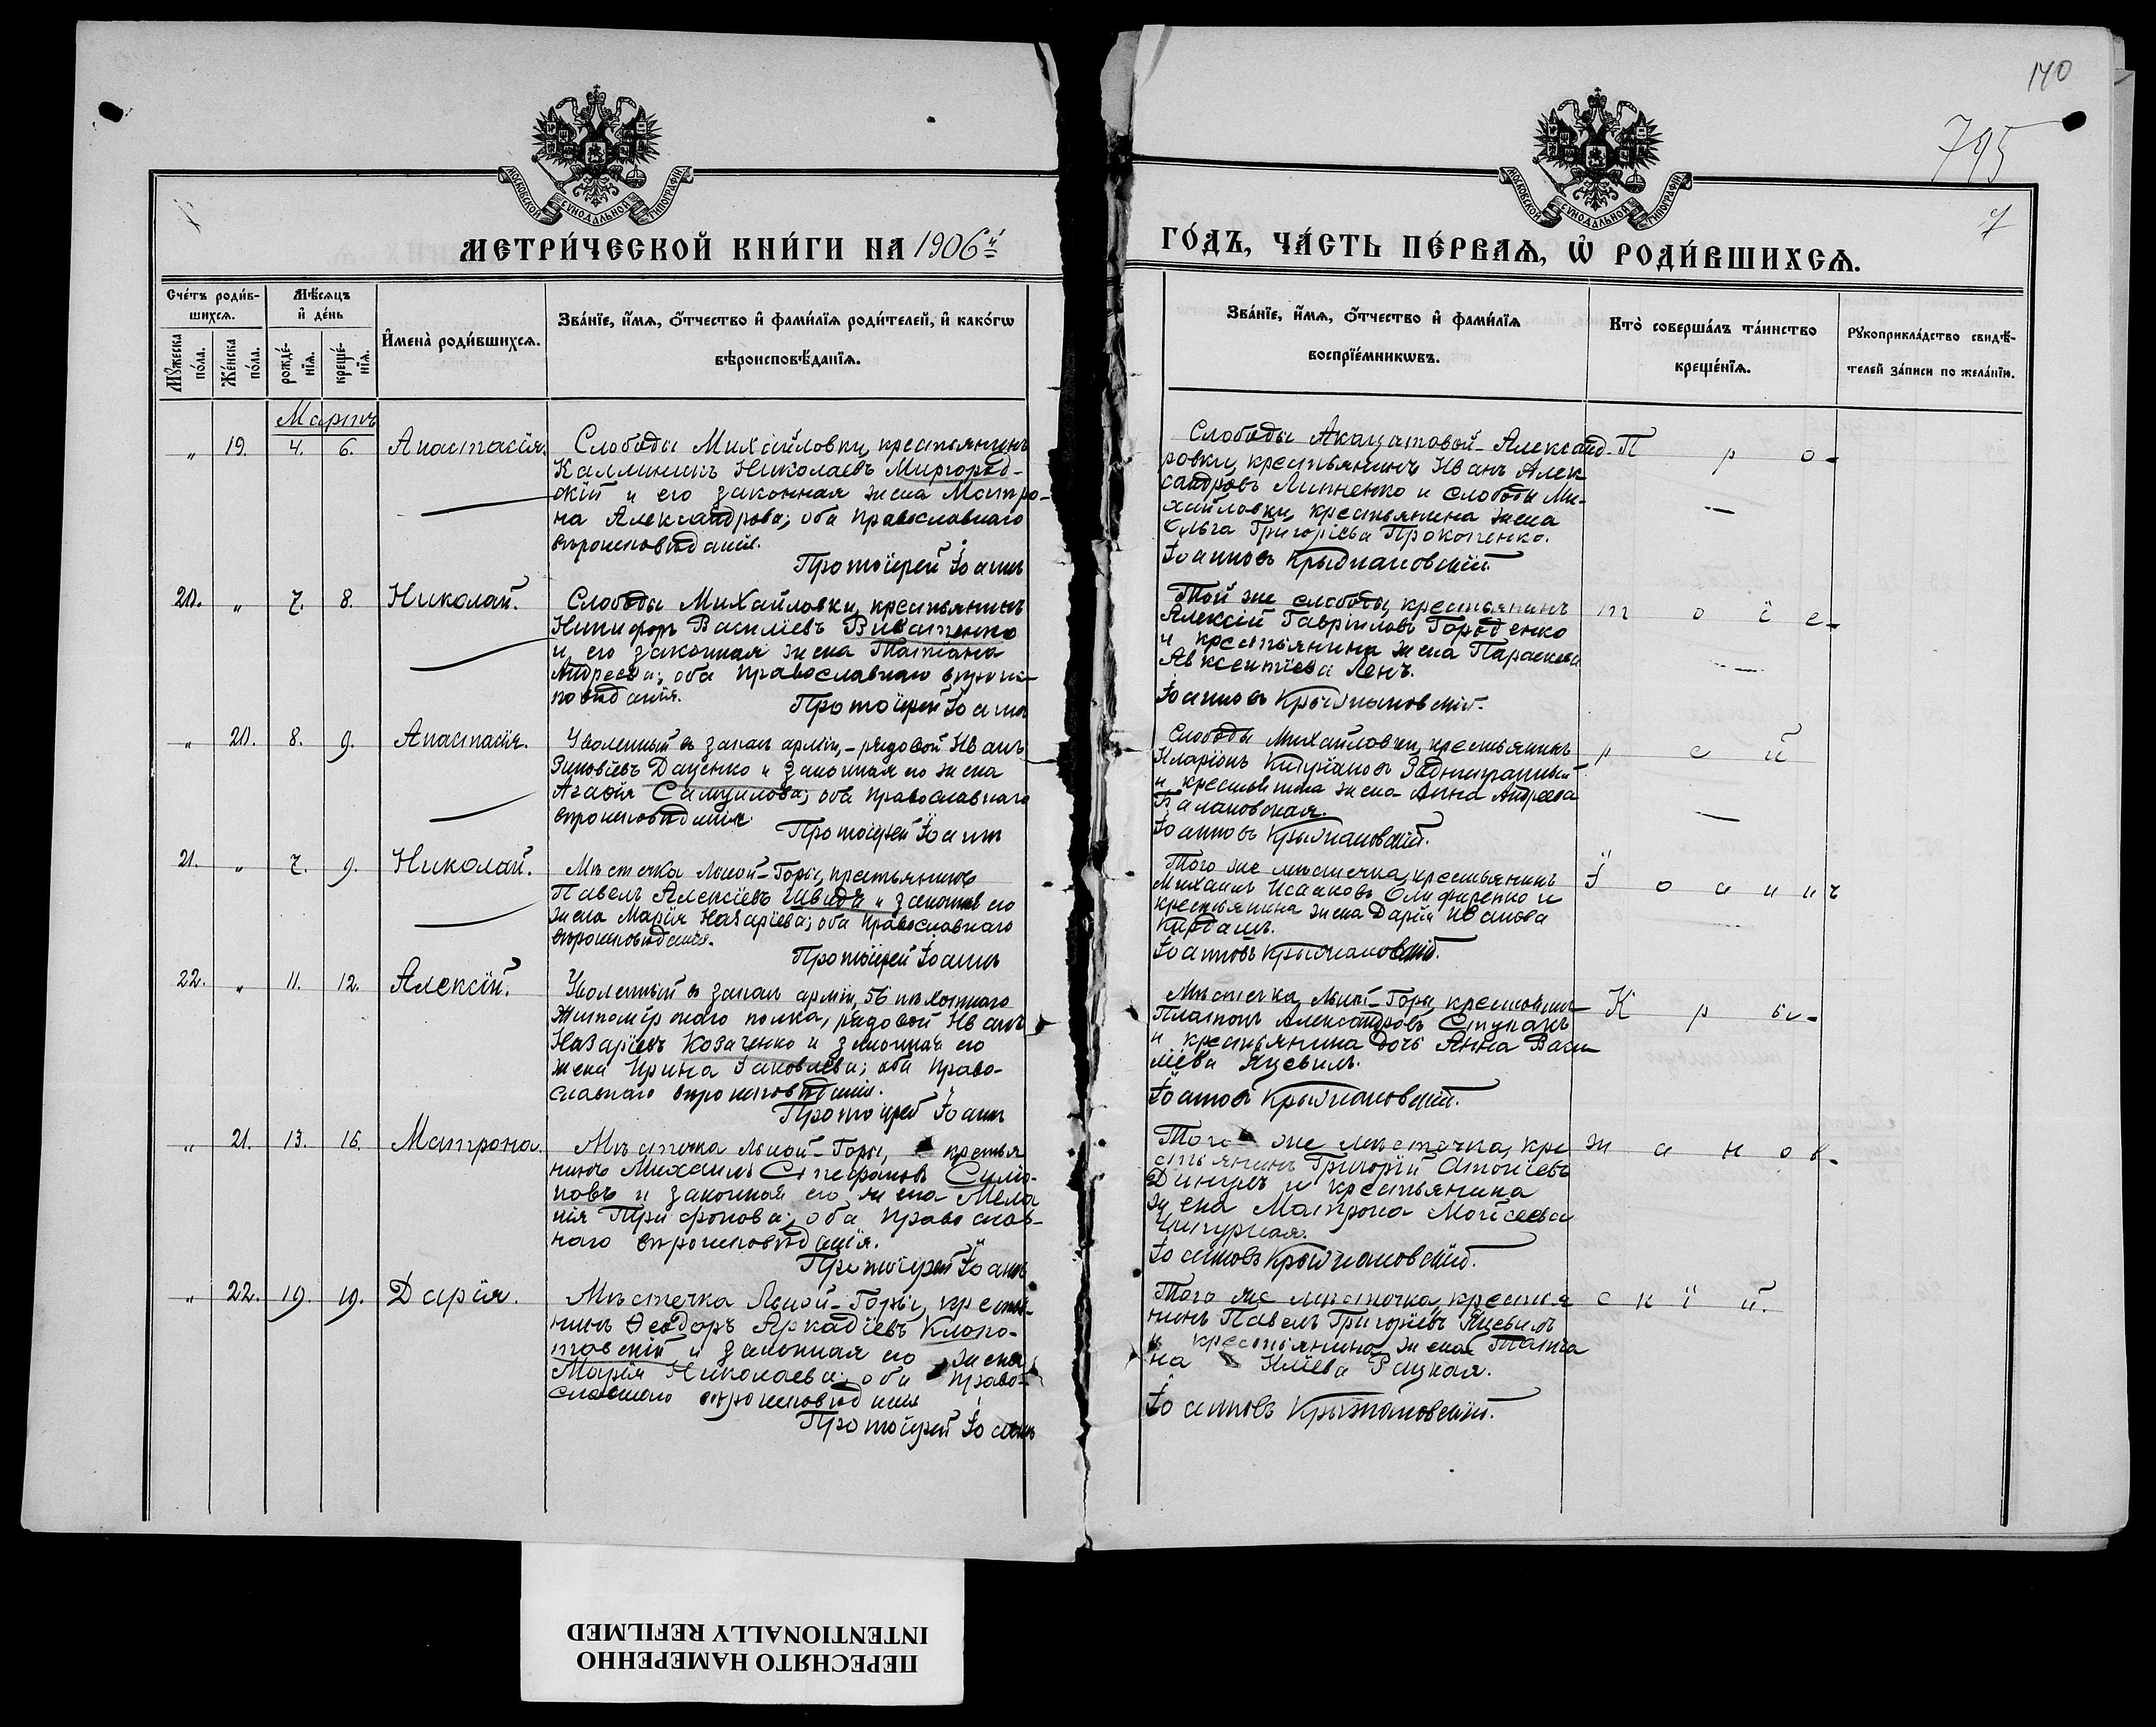 140
795
7
МОСКОВСКОЙ СѴНОДАЛЬНОЙ ТИПОГРАФІИ
МОСКОВСКОЙ СѴНОДАЛЬНОЙ ТИПОГРАФІИ
МЕТРИ́ЧЕСКОЙ КНИ́ГИ НА 1906й
ГО́ДЪ, ЧА́СТЬ ПЕ́РВАѦ, Ѡ҆ РОДИ́ВШИХСѦ.
Сче́тъ роди́в-
шихсѧ.
Мꙋ́жеска по́ла.
Же́нска по́ла.
Мѣ́сѧцъ
и҆ де́нь
рожде́-
нїѧ.
креще́-
нїѧ.
И҆мена̀ роди́вшихсѧ.
Зва́нїе, и҆́мѧ, ѻ҆́тчество и҆ фами́лїѧ роди́телей, и҆ како́гѡ
вѣроисповѣ́данїѧ.
Зва́нїе, и҆́мѧ, ѻ҆́тчество и҆ фами́лїѧ
воспрїе́мникѡвъ.
Кто̀ соверша́лъ та́инство
креще́нїѧ.
Рꙋкоприкла́дство свидѣ́-
телей за́писи по жела́нїю.
Мартъ
„ 19. 4. 6. Анастасія.
Слободы Михайловки, крестьянинъ
Каллиникъ Николаевъ Миргород-
скій и его законная жена Матро-
на Александрова; оба православнаго
вѣроисповѣданія.
Протоіерей Іоаннъ
Слободы Акацатовой-Александ-
ровки, крестьянинъ Иванъ Алек-
сандровъ Линненко и слободы Ми-
хайловки, крестьянина жена
Ольга Григоріева Прокопенко.
Іоанновъ Крыжановскій.
П р о-
20. „ 7. 8. Николай.
Слободы Михайловки, крестьянинъ
Никифоръ Василіевъ
и его законная жена Татіана
Андреева; оба православнаго вѣроис-
повѣданія.
Протоіерей Іоаннъ
Той же слободы, крестьянинъ
Алексій Гавріиловъ Городенко
и крестьянина жена Параскева
Авксентіева Ленъ.
Іоанновъ Крыжановскій.
т о і е-
„ 20. 8. 9. Анастасія.
Уволенный въ запас арміи,-рядовой Иванъ
Зиновіевъ Даценко и законная его жена
Агаѳія Самуилова; оба православнаго
вѣроисповѣданія.
Протоіерей Іоаннъ
Слободы Михайловки, крестьянинъ
Иларіонъ Кипріановъ
и крестьянина жена Анна Андреева
Балановская.
Іоанновъ Крыжановскій.
р е й
21. „ 7. 9. Николай.
Мѣстечка Лысой-Горы, крестьянинъ
Павелъ Алексіевъ Швидя и законная его
жена Марія Назаріева; оба православнаго
вѣроисповѣданія.
Протоіерей Іоаннъ
Того же мѣстечка, крестьянинъ
Михаилъ Исааковъ Олифиренко и
крестьянина жена Дарія Иванова
Кардашъ.
Іоанновъ Крыжановскій.
І о а н н ъ
22. „ 11. 12. Алексій.
Уволенный въ запас арміи, 56 пѣхотнаго
Житомірскаго полка, рядовой Иванъ
Назаріевъ Козаченко и законная его
жена Ирина Іаковлева; оба право-
славнаго вѣроисповѣданія.
Протоіерей Іоаннъ
Мѣстечка Лысой-Горы, крестьянинъ
Платонъ Александровъ Ступакъ
и крестьянина дочь Анна Васи-
ліева Яцевилъ.
Іоанновъ Крыжановскій.
К р ы-
„ 21. 13. 16. Матрона.
Мѣстечка Лысой-Горы, крестья
нинъ Михаилъ Стефановъ Симо-
новъ и законная его жена Мела
нія Трифонова; оба православ-
наго вѣроисповѣданія.
Протоіерей Іоаннъ
Того же мѣстечка, кре
стьянинъ Григорій Антоніевъ
и крестьянина
жена Матрона Моисеева
Чипурная.
Іоанновъ Крыжановскій.
ж а н о в-
„ 22. 19. 19. Дарія.
Мѣстечка Лысой-Горы, крестья-
нинъ Ѳеодоръ Аркадіевъ Клопо-
товскій и законная его жена
Марія Николаева; оба право-
славнаго вѣроисповѣданія
Протоіерей Іоаннъ
Того же мѣстечка, крестья
нинъ Павелъ Григоріевъ Яцевилъ
и крестьянина жена Татіа
на Иліева Рацкая.
Іоанновъ Крыжановскій.
с к і й.
ПЕРЕСНЯТО НАМЕРЕННО
INTENTIONALLY REFILMED